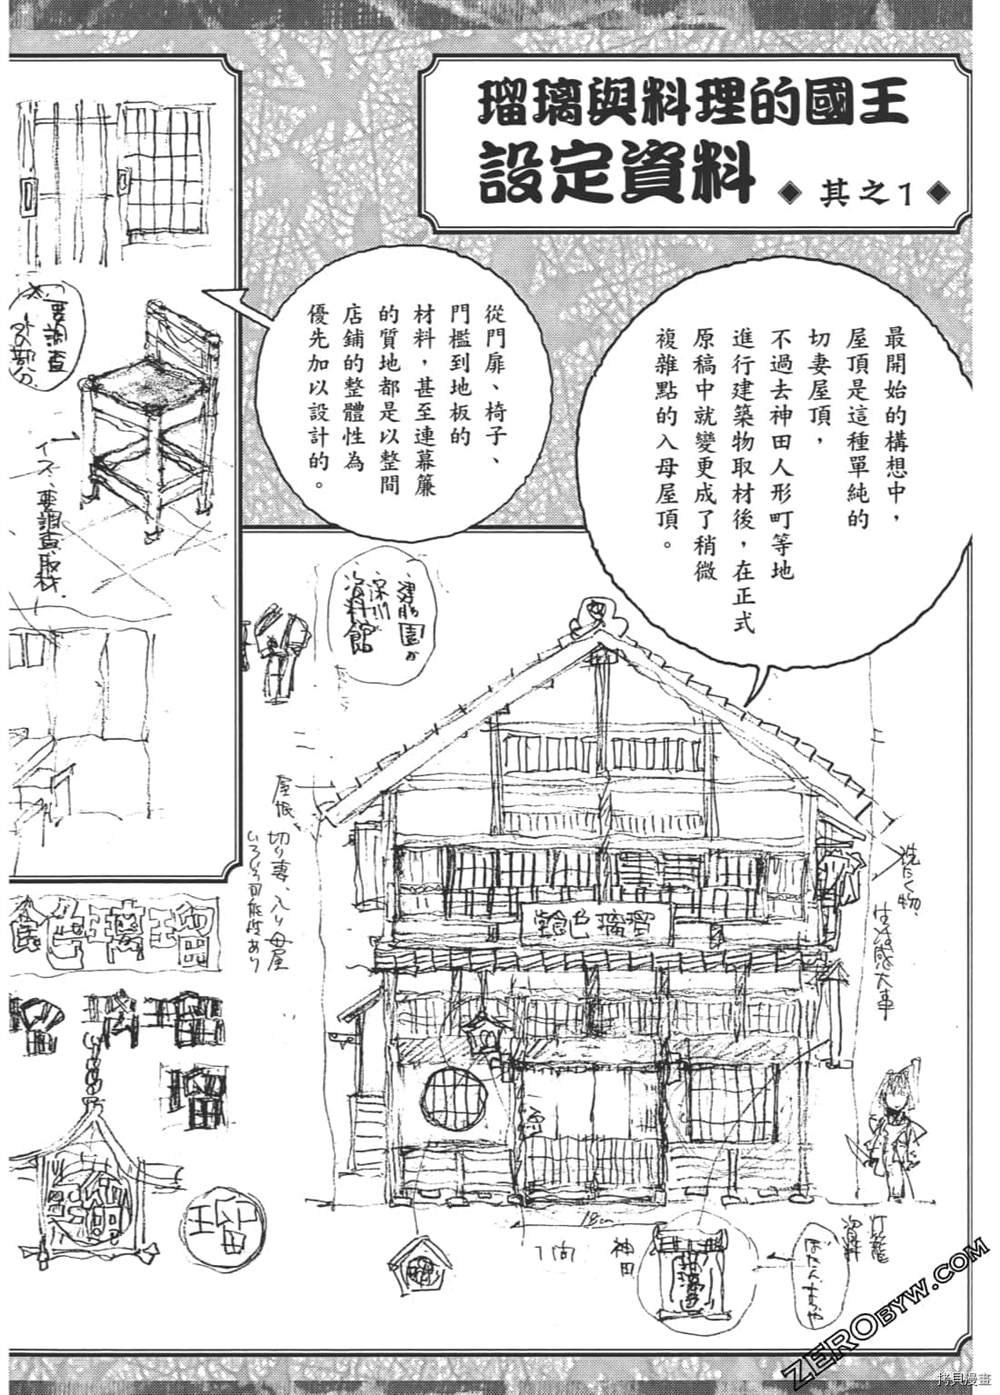 瑠璃與料理的國王
設定資料 ◆ 其之1 ◆
最開始的構想中，
屋頂是這種單純的
切妻屋頂，
不過去神田人形町等地
進行建築物取材後，在正式
原稿中就變更成了稍微
複雜點的入母屋頂。
從門扉、椅子、
門檻到地板的
材料，甚至連幕簾
的質地都是以整間
店鋪的整體性為
優先加以設計的。
要調査
イス、要調査、取材.
深川
資料館
屋根
切り妻、入り母屋
いろいろ可能性あり
洗たく物、
生活感大事
瑠璃色飴
瑠璃色
18cm
1間
神田
灯籠
資料
ZEROBYW.COM
拷貝漫畫